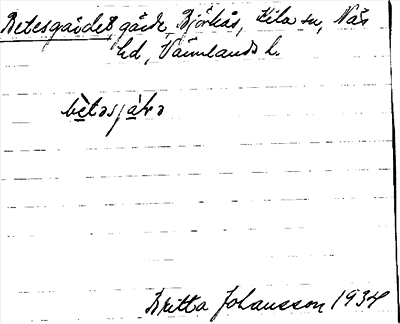 Betesgärdet gärde, Björkås, Kila sn, Näs
hd, Värmlands l.
bètəsjàrə
Britta Johansson 1934